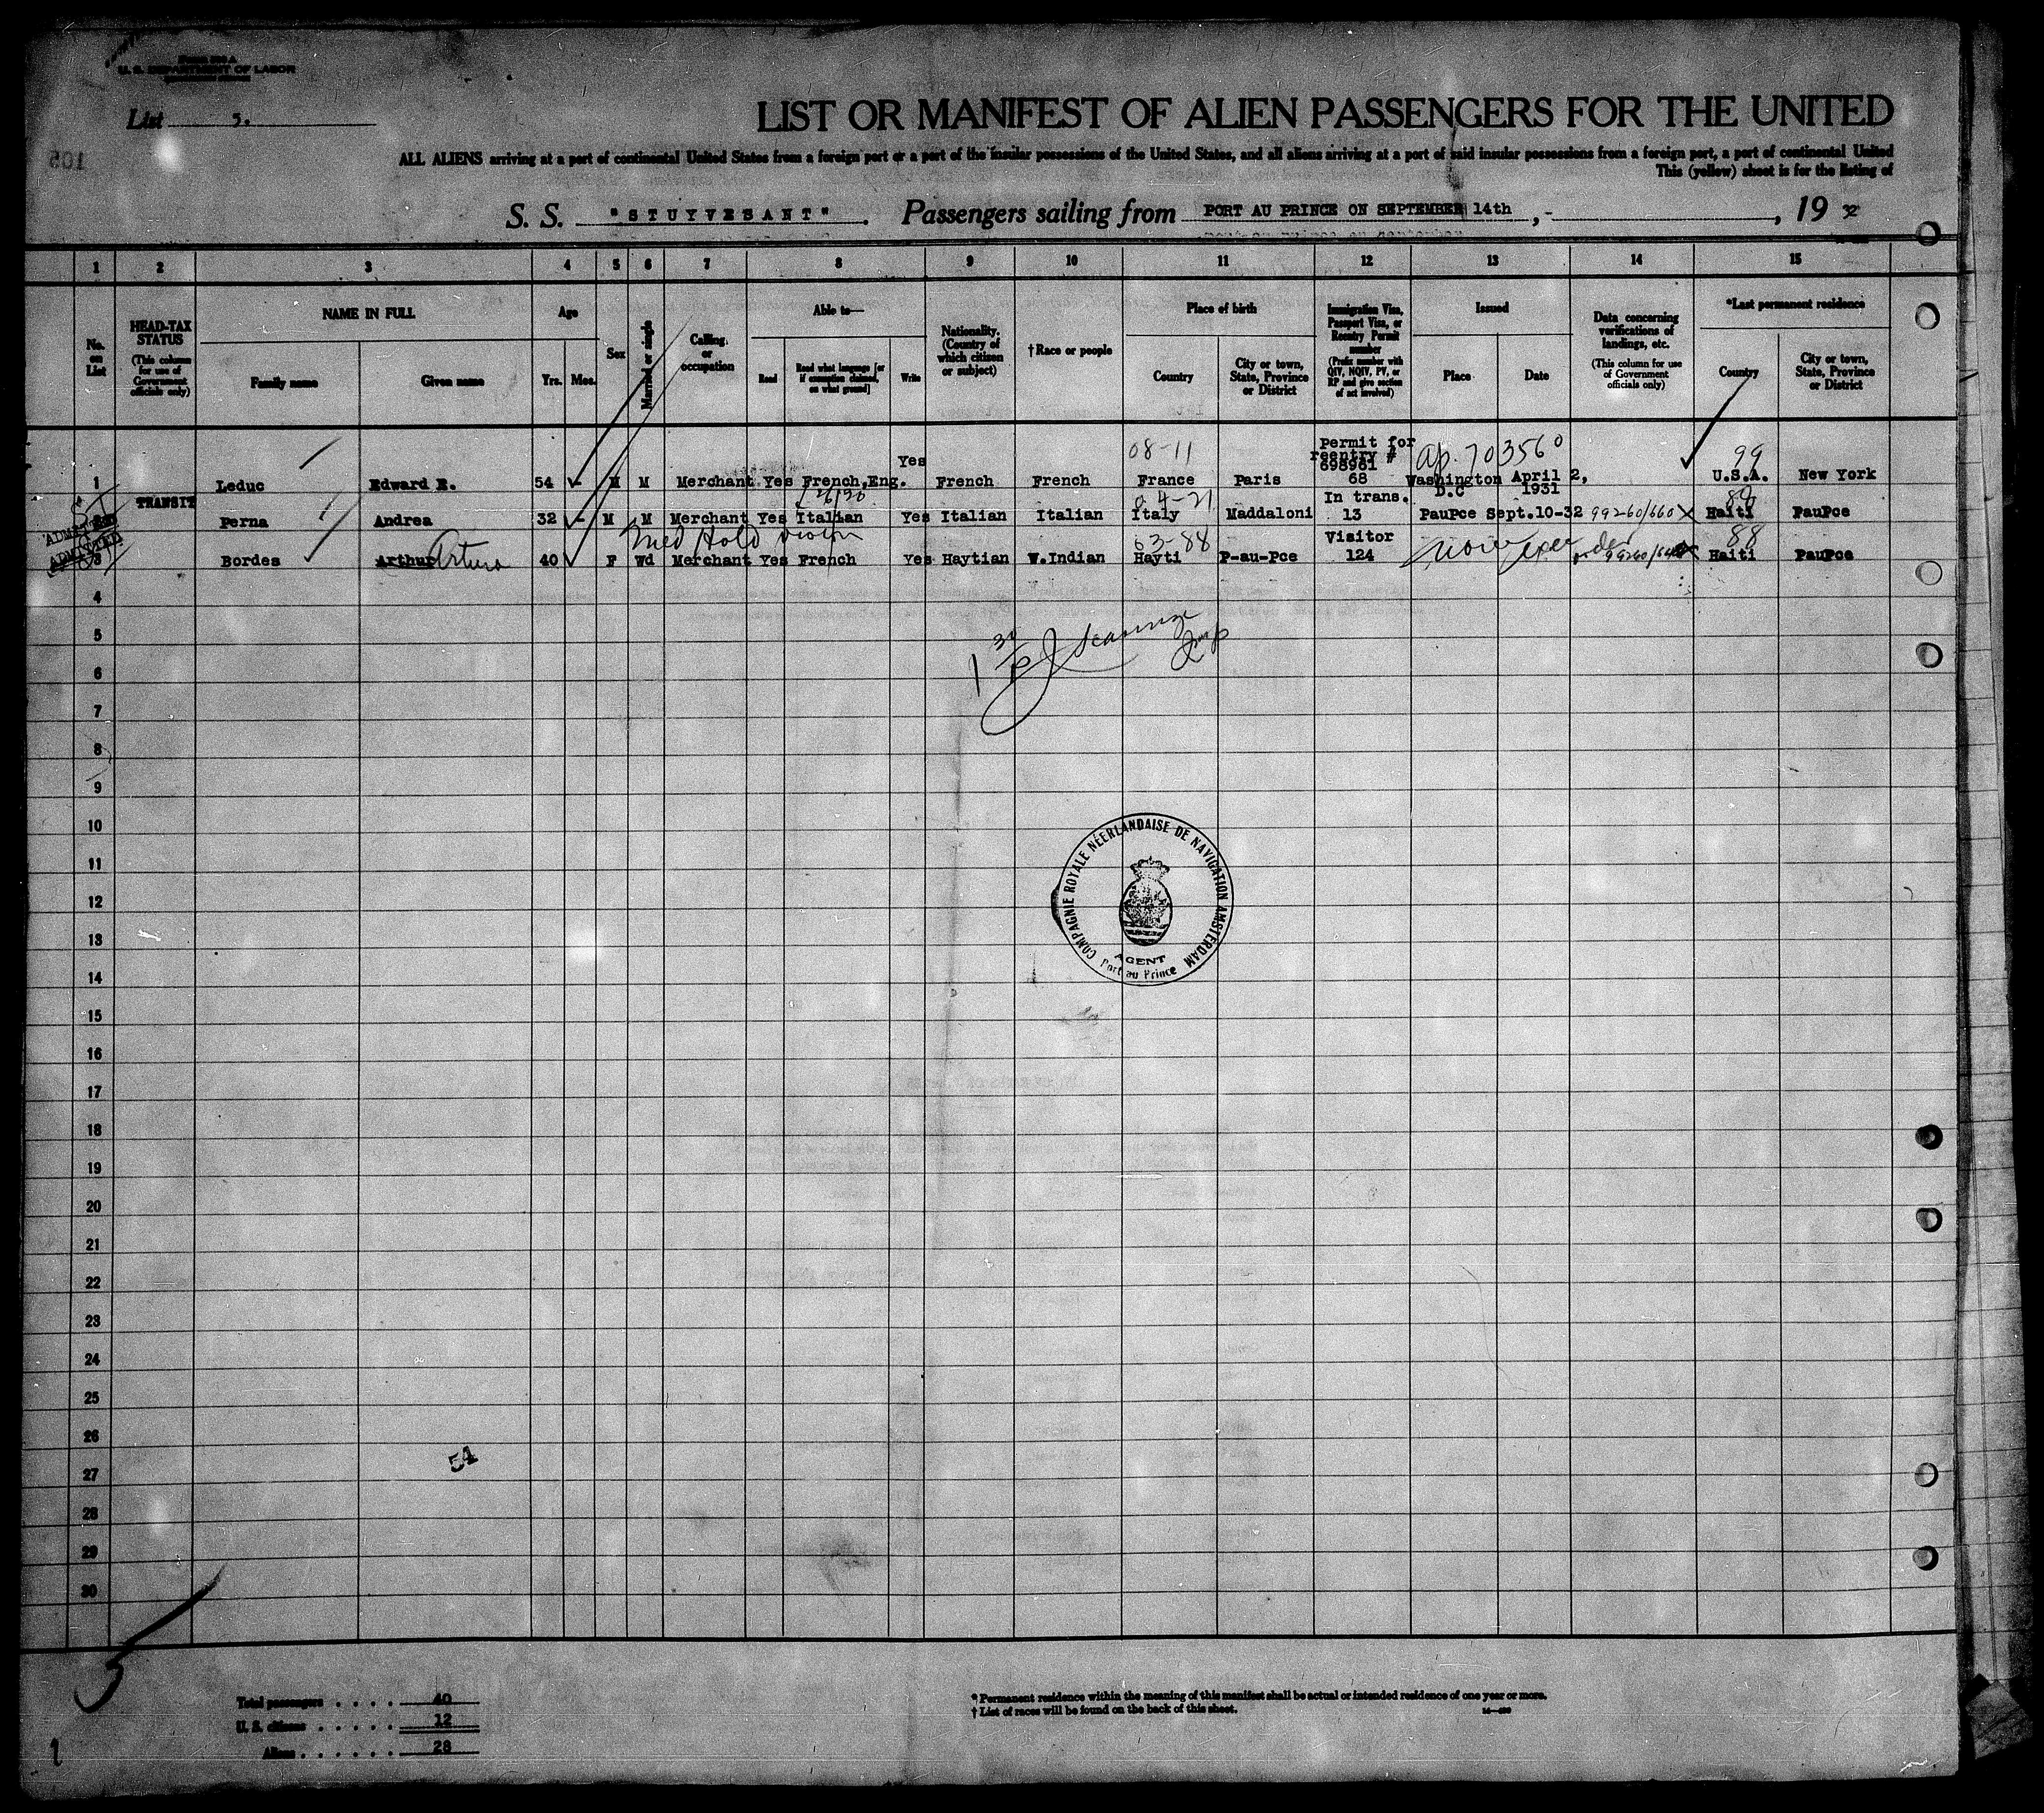 U. S. DEPARTMENT OF LABOR
List 5.
LIST OR MANIFEST OF ALIEN PASSENGERS FOR THE UNITED
ALL ALIENS arriving at a port of continental United States from a foreign port or a port of the insular possessions of the United States, and all aliens arriving at a port of said insular possessions from a foreign port, a port of continental United
This (yellow) sheet is for the listing of
S. S. "STUYVESANT". Passengers sailing from PORT AU PRINCE ON SEPTEMBER 14th, -, 19
1 2 3 4 5 6 7 8 9 10 11 12 13 14 15
No. on List
HEAD-TAX STATUS
(This column for use of Government officials only)
NAME IN FULL
Family name Given name
Age
Yrs. Mos.
Sex
Married or single
Calling or occupation
Able to—
Read
Read what language [or if exemption claimed, on what ground]
Write
Nationality. (Country of which citizen or subject)
†Race or people
Place of birth
Country
City or town, State, Province or District
Immigration Visa, Passport Visa, or Reentry Permit number
(Prefix number with QIV, NQIV, PV, or RP and give section of act involved)
Issued
Place Date
Data concerning verifications of landings, etc.
(This column for use of Government officials only)
*Last permanent residence
Country
City or town, State, Province or District
08-11 permit for reentry # 698961 ap. 703560 99
1 Leduc Edward E. 54 - M M Merchant Yes French,Eng. Yes French French France Paris 68 Washington D.C April 2, 1931 U.S.A. New York
TRANSIT 04-21 In trans. 88
Perna Andrea 32 - M M Merchant Yes Italian Yes Italian Italian Italy Maddaloni 13 PauPce Sept.10-32 99260/660 X Haiti PauPce
ADMITTED
ADMITTED
Med Hold 63-88 Visitor 88
3 Bordes Arthur Arturo 40 F Wd Merchant Yes French Yes Haytian W.Indian Hayti P-au-Pce 124 Haiti PauPce
4
5
6
7
8
9
10
11
12
13
14
15
16
17
18
19
20
21
22
23
24
25
26
27
28
29
30
COMPAGNIE ROYALE NÉERLANDAISE DE NAVIGATION AMSTERDAM
AGENT
Port au Prince
54
5
Total passengers . . . . 40
U. S. citizens . . . . . 12
Aliens . . . . . . 28
* Permanent residence within the meaning of this manifest shall be actual or intended residence of one year or more.
† List of races will be found on the back of this sheet.
1